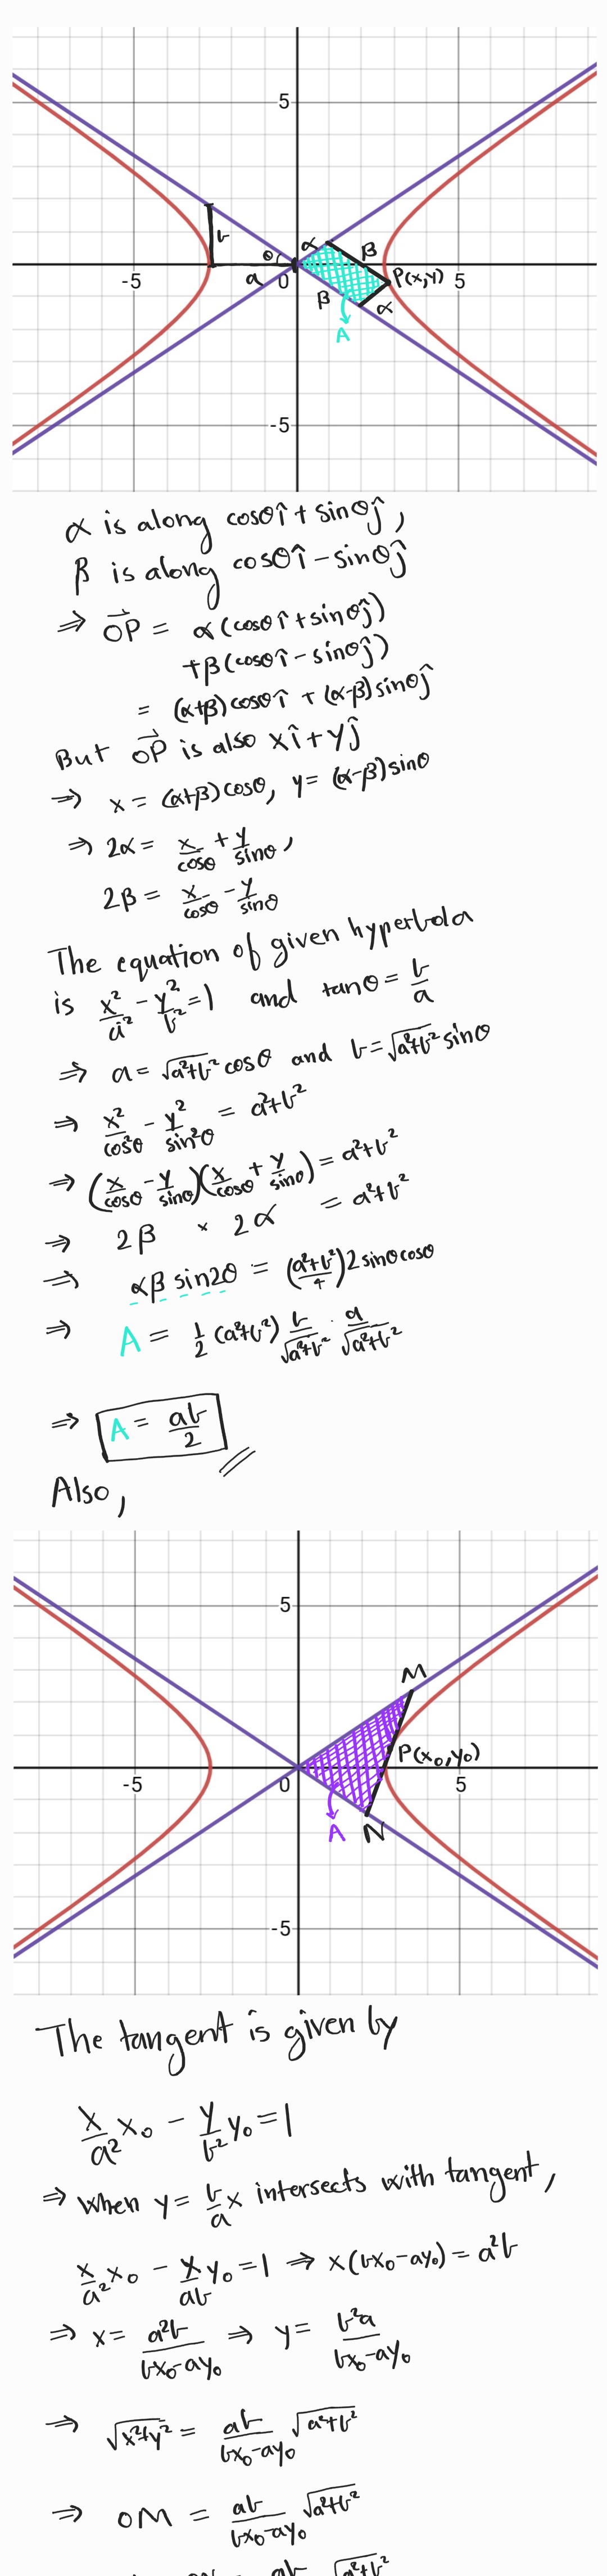 5
b
θ
a
-5
0
α
β
P(x,y)
5
β
α
A
-5
α is along cosθî + sinθĵ,
β is along cosθî - sinθĵ
⇒ OP⃗ = α(cosθî + sinθĵ)
+β(cosθî - sinθĵ)
= (α+β)cosθî + (α-β)sinθĵ
But OP⃗ is also xî + yĵ
⇒ x = (α+β)cosθ, y = (α-β)sinθ
⇒ 2α = x/cosθ + y/sinθ,
2β = x/cosθ - y/sinθ
The equation of given hyperbola
is x²/a² - y²/b² = 1 and tanθ = b/a
⇒ a = √(a²+b²) cosθ and b = √(a²+b²) sinθ
⇒ x²/cos²θ - y²/sin²θ = a²+b²
⇒ (x/cosθ - y/sinθ)(x/cosθ + y/sinθ) = a²+b²
⇒ 2β × 2α = a²+b²
⇒ αβ sin2θ = ((a²+b²)/4) 2 sinθcosθ
⇒ A = 1/2 (a²+b²) b/√(a²+b²) · a/√(a²+b²)
⇒ A = ab/2
Also,
5
M
-5
0
P(x₀,y₀)
5
A
N
-5
The tangent is given by
x/a² x₀ - y/b² y₀ = 1
⇒ when y = b/a x intersects with tangent,
x/a² x₀ - x/ab y₀ = 1 ⇒ x(bx₀-ay₀) = a²b
⇒ x = a²b/(bx₀-ay₀) ⇒ y = b²a/(bx₀-ay₀)
⇒ √(x²+y²) = ab/(bx₀-ay₀) √(a²+b²)
⇒ OM = ab/(bx₀-ay₀) √(a²+b²)